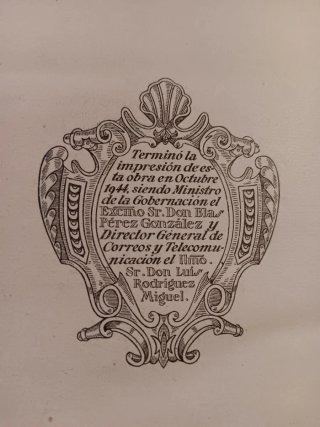 Terminó la
impresión de es-
ta obra en Octubre
1944, siendo Ministro
de la Gobernación el
Excmo Sr. Don Blas
Pérez González y
Director General de
Correos y Telecomu-
nicación el Ilmo.
Sr. Don Luis
Rodríguez
Miguel.